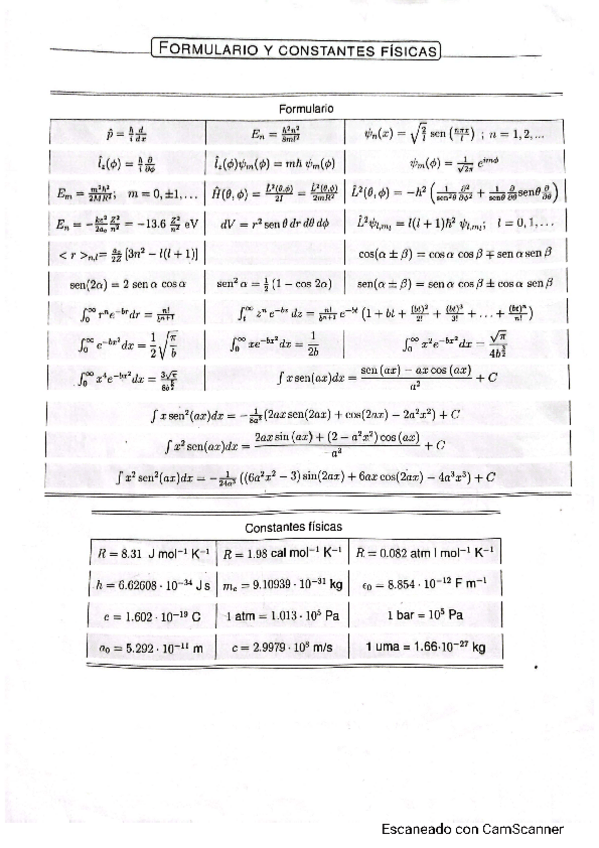 FORMULARIO Y CONSTANTES FÍSICAS
Formulario
p̂ = ħ/i d/dx   E_n = h²n²/8ml²   ψ_n(x) = √(2/l) sen (nπx/l) ; n = 1, 2, ...
l̂_z(ϕ) = ħ/i ∂/∂ϕ   l̂_z(ϕ)ψ_m(ϕ) = mħ ψ_m(ϕ)   ψ_m(ϕ) = 1/√2π e^{imϕ}
E_m = m²ħ²/2MR²; m = 0, ±1, ...   Ĥ(θ, ϕ) = L̂²(θ,ϕ)/2I = L̂²(θ,ϕ)/2mR²   L̂²(θ, ϕ) = −ħ² (1/sen²θ ∂²/∂ϕ² + 1/senθ ∂/∂θ senθ ∂/∂θ)
E_n = − Z²/n² = −13.6 Z²/n² eV   dV = r² sen θ dr dθ dϕ   L̂²ψ_{l,m_l} = l(l + 1)ħ² ψ_{l,m_l}; l = 0, 1, ...
< r >_{n,l} = a₀/2Z [3n² − l(l + 1)]   cos(α ± β) = cos α cos β ∓ sen α sen β
sen(2α) = 2 sen α cos α   sen² α = ½ (1 − cos 2α)   sen(α ± β) = sen α cos β ± cos α sen β
∫₀^∞ rⁿe^{−br}dr = n!/b^{n+1}   ∫_t^∞ zⁿ e^{−bz} dz = n!/b^{n+1} e^{−bt} (1 + bt + (bt)²/2! + (bt)³/3! + ... + (bt)ⁿ/n!)
∫₀^∞ e^{−bx²}dx = 1/2 √(π/b)   ∫₀^∞ xe^{−bx²}dx = 1/2b   ∫₀^∞ x²e^{−bx²}dx = √π/4b^{3/2}
∫₀^∞ x⁴e^{−bx²}dx = 3√π/8b^{5/2}   ∫ x sen(ax)dx = (sen (ax) − ax cos (ax))/a² + C
∫ x sen²(ax)dx = −1/8a² (2ax sen(2ax) + cos(2ax) − 2a²x²) + C
∫ x² sen(ax)dx = (2ax sin (ax) + (2 − a²x²) cos (ax))/a³ + C
∫ x² sen²(ax)dx = −1/24a³ ((6a²x² − 3) sin(2ax) + 6ax cos(2ax) − 4a³x³) + C
Constantes físicas
R = 8.31 J mol⁻¹ K⁻¹   R = 1.98 cal mol⁻¹ K⁻¹   R = 0.082 atm l mol⁻¹ K⁻¹
h = 6.62608 · 10⁻³⁴ J s   m_e = 9.10939 · 10⁻³¹ kg   ϵ₀ = 8.854 · 10⁻¹² F m⁻¹
e = 1.602 · 10⁻¹⁹ C   1 atm = 1.013 · 10⁵ Pa   1 bar = 10⁵ Pa
a₀ = 5.292 · 10⁻¹¹ m   c = 2.9979 · 10⁸ m/s   1 uma = 1.66·10⁻²⁷ kg
Escaneado con CamScanner